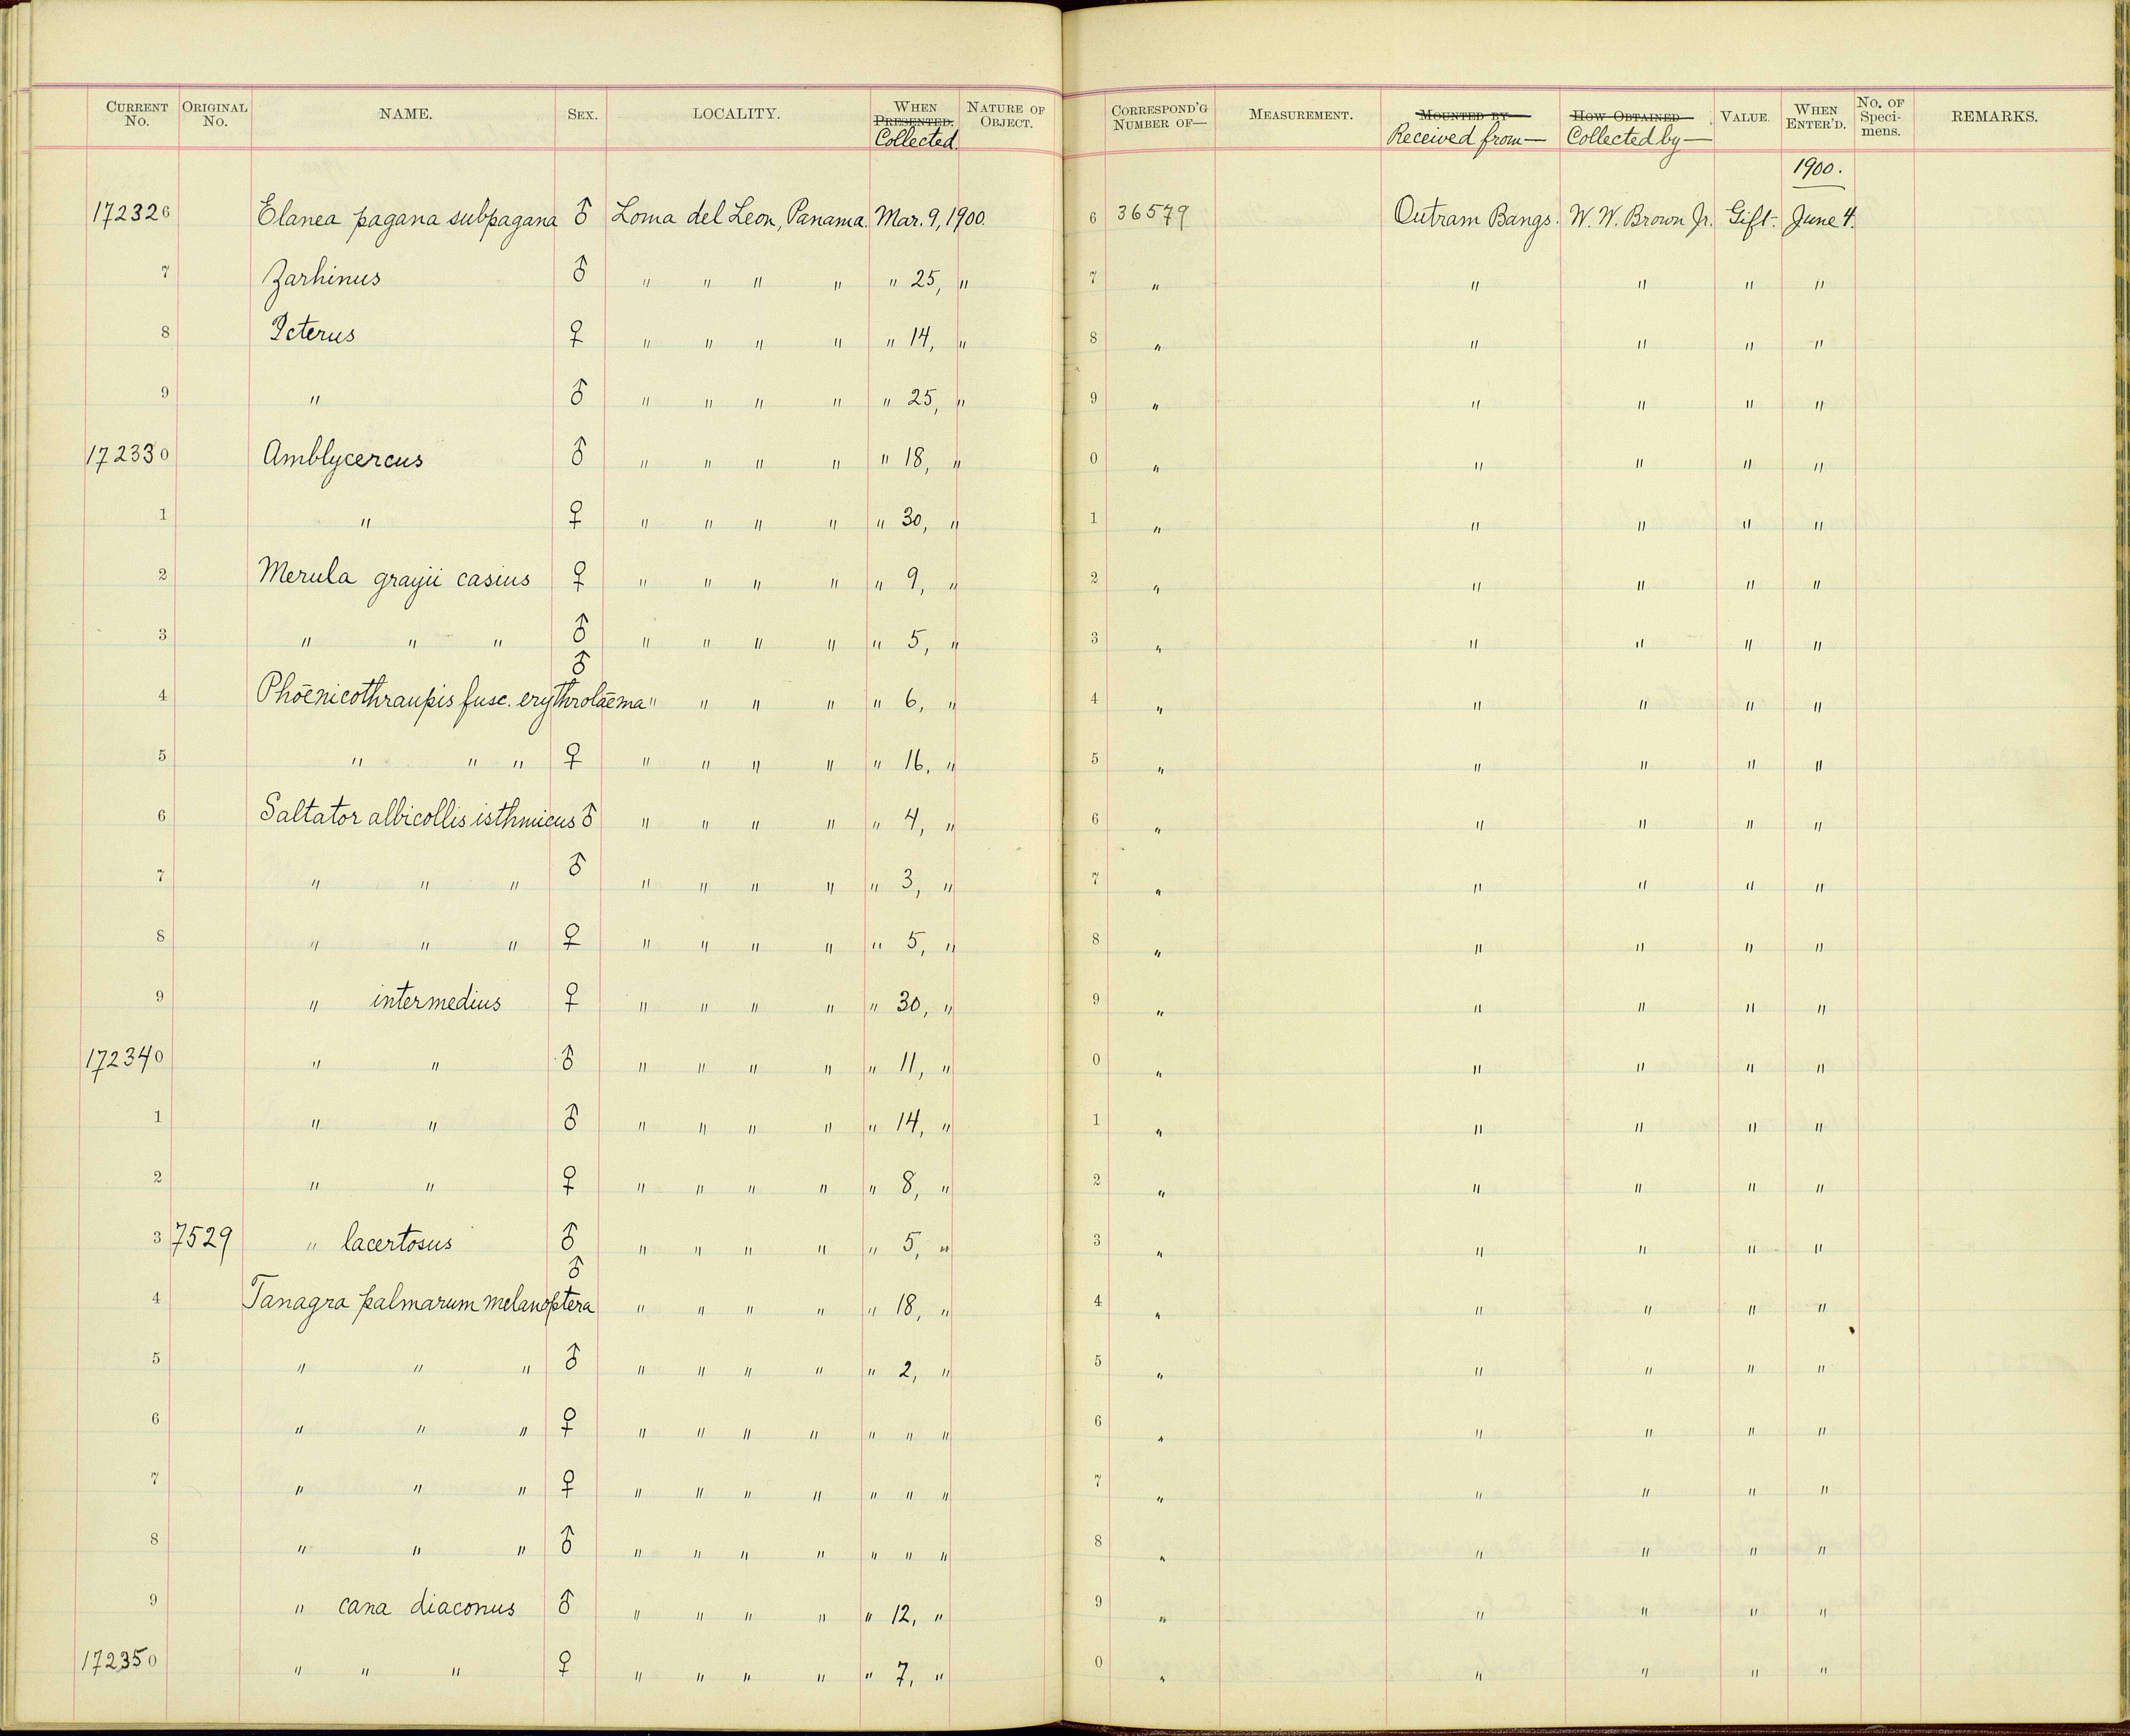 CURRENT No. ORIGINAL No. NAME. SEX. LOCALITY. WHEN PRESENTED. Collected. NATURE OF OBJECT. CORRESPOND'G NUMBER OF— MEASUREMENT. MOUNTED BY— Received from— HOW OBTAINED Collected by— VALUE. WHEN ENTER'D. No. OF Speci-mens. REMARKS.
1900.
172326 Elanea pagana subpagana ♂ Loma del Leon, Panama. Mar. 9, 1900. 6 36579 Outram Bangs. W. W. Brown Jr. Gift. June 4.
7 Zarhinus ♂ " " " " " 25, " 7 " " " " "
8 Icterus ♀ " " " " " 14, " 8 " " " " "
9 " ♂ " " " " " 25, " 9 " " " " "
172330 Amblycercus ♂ " " " " " 18, " 0 " " " " "
1 " ♀ " " " " " 30, " 1 " " " " "
2 Merula grayii casius ♀ " " " " " 9, " 2 " " " " "
3 " " " ♂ " " " " " 5, " 3 " " " " "
4 Phoenicothraupis fusc. erythrolaema ♂ " " " " " 6, " 4 " " " " "
5 " " " ♀ " " " " " 16, " 5 " " " " "
6 Saltator albicollis isthmicus ♂ " " " " " 4, " 6 " " " " "
7 " " " ♂ " " " " " 3, " 7 " " " " "
8 " " " ♀ " " " " " 5, " 8 " " " " "
9 " intermedius ♀ " " " " " 30, " 9 " " " " "
172340 " " ♂ " " " " " 11, " 0 " " " " "
1 " " ♂ " " " " " 14, " 1 " " " " "
2 " " ♀ " " " " " 8, " 2 " " " " "
3 7529 " lacertosus ♂ " " " " " 5, " 3 " " " " "
4 Tanagra palmarum melanoptera ♂ " " " " " 18, " 4 " " " " "
5 " " " ♂ " " " " " 2, " 5 " " " " "
6 " " " ♀ " " " " " " " 6 " " " " "
7 " " " ♀ " " " " " " " 7 " " " " "
8 " " " ♂ " " " " " " " 8 " " " " "
9 " cana diaconus ♂ " " " " " 12, " 9 " " " " "
172350 " " " ♀ " " " " " 7, " 0 " " " " "